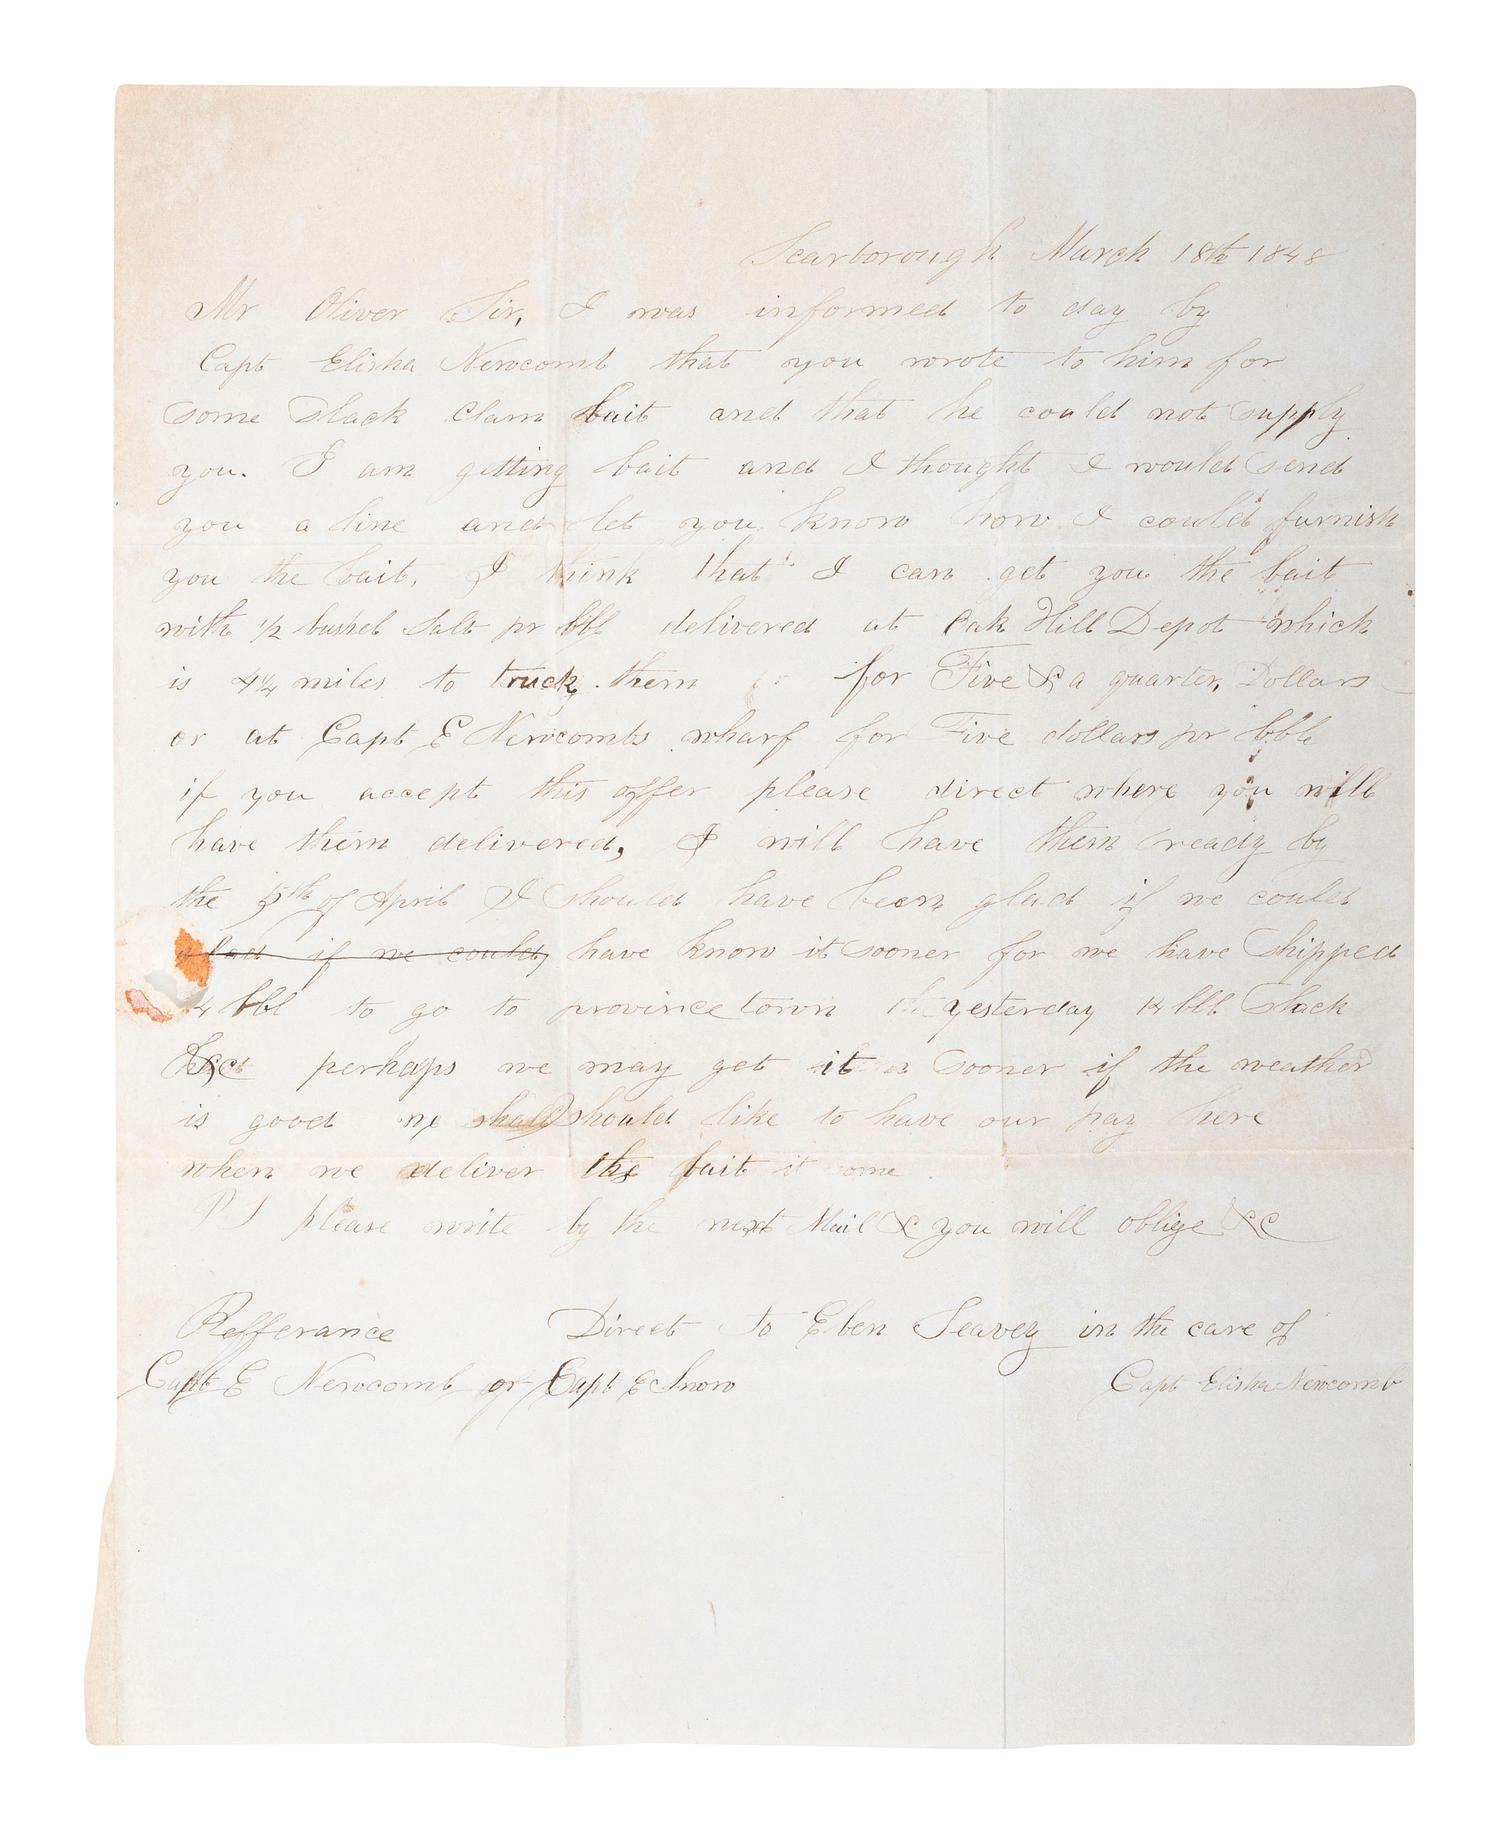 Scarborough March 18th 1848
Mr Oliver Sir, I was informed to day by
Capt Elisha Newcomb that you wrote to him for
some Slack Clam bait and that he could not supply
you. I am getting bait and I thought I would send
you a line and let you know how I could furnish
you the bait, I think that I can get you the bait
with 1/2 bushel Salt pr bbl delivered at Oak Hill Depot which
is 4 1/4 miles to truck them for Five & a quarter, Dollars
or at Capt E Newcombs wharf for Five dollars pr bbl
if you accept this offer please direct where you will
have them delivered, I will have them ready by
the 15th of April I should have been glad if we could
glad if we could, have know it sooner for we have Shipped
bbl to go to province town yesterday 14 bbl Slack
perhaps we may get it sooner if the weather
is good we shall should like to have our pay here
when we deliver the bait it
P S please write by the next Mail & you will oblige &c
Refferance Direct to Eben Seavey in the care of
Capt E Newcomb or Capt E Snow Capt Elisha Newcomb